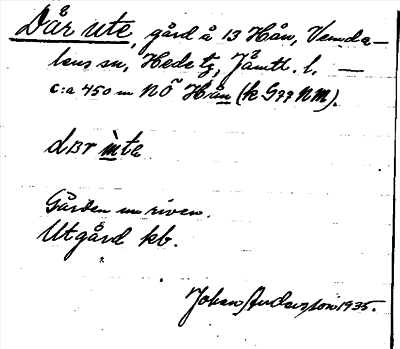 Där ute, gård å 13 Hån, Vemda-
lens sn, Hede tg, Jämtl. l. —
c:a 450 m NÖ Hån (k G77 NM).
där ùte
Gården nu riven.
Utgård kb.
Johan Andersson 1935.